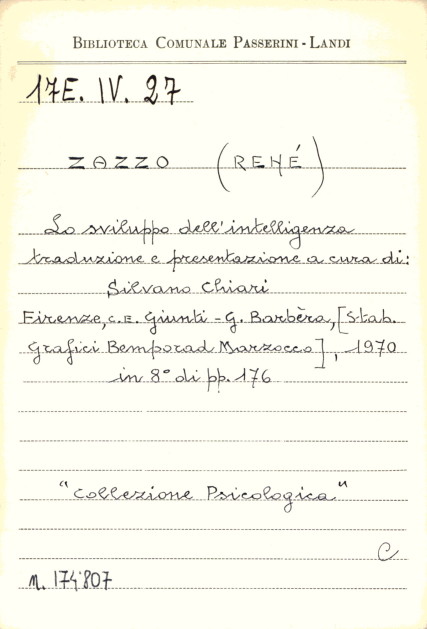 BIBLIOTECA COMUNALE PASSERINI - LANDI
17E. IV. 27
ZAZZO (RENÉ)
Lo sviluppo dell'intelligenza
traduzione e presentazione a cura di:
Silvano Chiari
Firenze, C.E. Giunti - G. Barbèra, [Stab.
Grafici Bemporad Marzocco], 1970
in 8° di pp. 176
"Collezione Psicologica"
C
n. 174'807